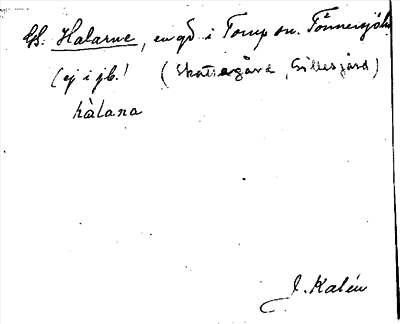 Gg. Halarne, en gd i Torup sn. Tönnersjöh.
(ej i jb.! (Skattegård, Gillesgård)
hàlana
J. Kalén